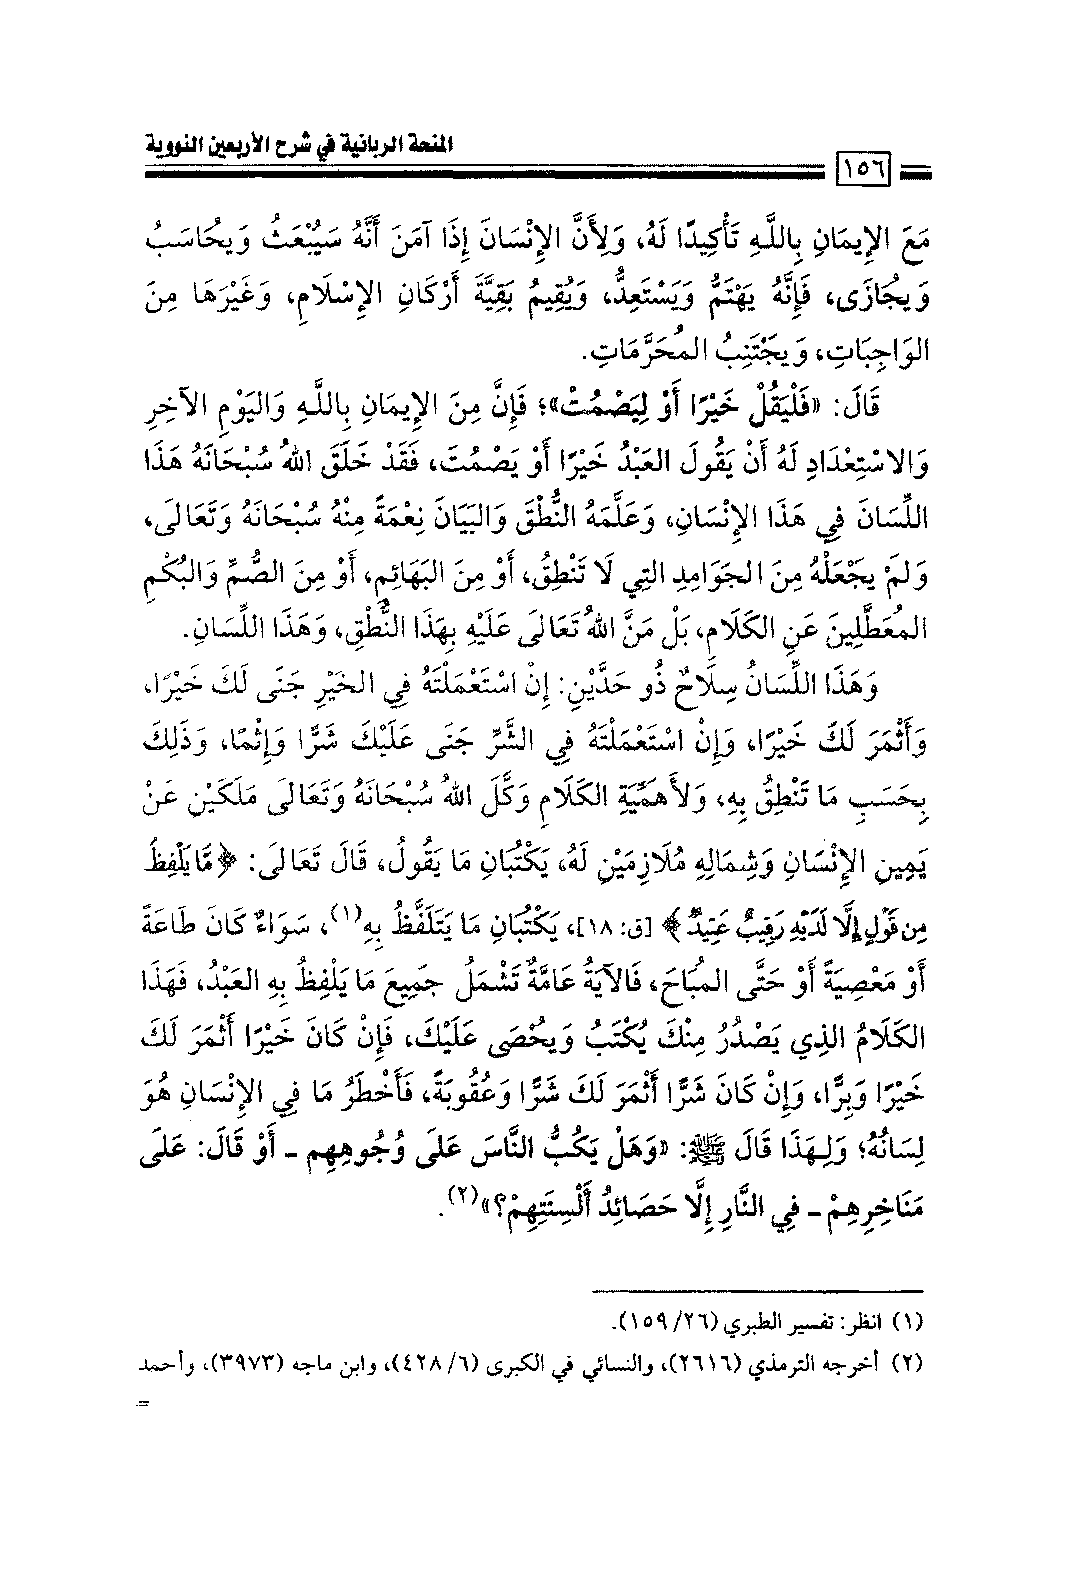 المنحة الربانية في شرح الأربعين النووية
١٥٦
مَعَ الإِيمَانِ بِاللَّهِ تَأْكِيدًا لَهُ، وَلِأَنَّ الإِنْسَانَ إِذَا آمَنَ أَنَّهُ سَيُبْعَثُ وَيحَاسَبُ
وَيجَازَى، فَإِنَّهُ يَهْتَمُّ وَيَسْتَعِدُّ، وَيُقِيمُ بَقِيَّةَ أَرْكَانِ الإِسْلَامِ، وَغَيْرَهَا مِنَ
الوَاجِبَاتِ، وَيجْتَنِبُ المُحَرَّمَاتِ.
قَالَ: «فَلْيَقُلْ خَيْرًا أَوْ لِيَصْمُتْ»؛ فَإِنَّ مِنَ الإِيمَانِ بِاللَّهِ وَاليَوْمِ الآخِرِ
وَالاسْتِعْدَادِ لَهُ أَنْ يَقُولَ العَبْدُ خَيْرًا أَوْ يَصْمُتَ، فَقَدْ خَلَقَ اللهُ سُبْحَانَهُ هَذَا
اللِّسَانَ فِي هَذَا الإِنْسَانِ، وَعَلَّمَهُ النُّطْقَ وَالبَيَانَ نِعْمَةً مِنْهُ سُبْحَانَهُ وَتَعَالَى،
وَلَمْ يجْعَلْهُ مِنَ الجَوَامِدِ التِي لَا تَنْطِقُ، أَوْ مِنَ البَهَائِمِ، أَوْ مِنَ الصُّمِّ وَالبُكْمِ
المُعَطَّلِينَ عَنِ الكَلَامِ، بَلْ مَنَّ اللهُ تَعَالَى عَلَيْهِ بِهَذَا النُّطْقِ، وَهَذَا اللِّسَانِ.
وَهَذَا اللِّسَانُ سِلَاحٌ ذُو حَدَّيْنِ: إِنْ اسْتَعْمَلْتَهُ فِي الخَيْرِ جَنَى لَكَ خَيْرًا،
وَأَثْمَرَ لَكَ خَيْرًا، وَإِنْ اسْتَعْمَلْتَهُ فِي الشَّرِّ جَنَى عَلَيْكَ شَرًّا وَإِثْمًا، وَذَلِكَ
بِحَسَبِ مَا تَنْطِقُ بِهِ، وَلأَهَمِّيَّةِ الكَلَامِ وَكَّلَ اللهُ سُبْحَانَهُ وَتَعَالَى مَلَكَيْنِ عَنْ
يَمِينِ الإِنْسَانِ وَشِمَالِهِ مُلَازِمَيْنِ لَهُ، يَكْتُبَانِ مَا يَقُولُ، قَالَ تَعَالَى: ﴿مَّا يَلْفِظُ
مِن قَوْلٍ إِلَّا لَدَيْهِ رَقِيبٌ عَتِيدٌ﴾ [ق: ١٨]، يَكْتُبَانِ مَا يَتَلَفَّظُ بِهِ(١)، سَوَاءٌ كَانَ طَاعَةً
أَوْ مَعْصِيَةً أَوْ حَتَّى المُبَاحَ، فَالآيَةُ عَامَّةٌ تَشْمَلُ جَمِيعَ مَا يَلْفِظُ بِهِ العَبْدُ، فَهَذَا
الكَلَامُ الذِي يَصْدُرُ مِنْكَ يُكْتَبُ وَيحْصَى عَلَيْكَ، فَإِنْ كَانَ خَيْرًا أَثْمَرَ لَكَ
خَيْرًا وَبِرًّا، وَإِنْ كَانَ شَرًّا أَثْمَرَ لَكَ شَرًّا وَعُقُوبَةً، فَأَخْطَرُ مَا فِي الإِنْسَانِ هُوَ
لِسَانُهُ؛ وَلِهَذَا قَالَ ﷺ: «وَهَلْ يَكُبُّ النَّاسَ عَلَى وُجُوهِهِم - أَوْ قَالَ: عَلَى
مَنَاخِرِهِمْ - فِي النَّارِ إِلَّا حَصَائِدُ أَلْسِنَتِهِمْ؟»(٢).
(١) انظر: تفسير الطبري (٢٦/ ١٥٩).
(٢) أخرجه الترمذي (٢٦١٦)، والنسائي في الكبرى (٦/ ٤٢٨)، وابن ماجه (٣٩٧٣)، وأحمد
=